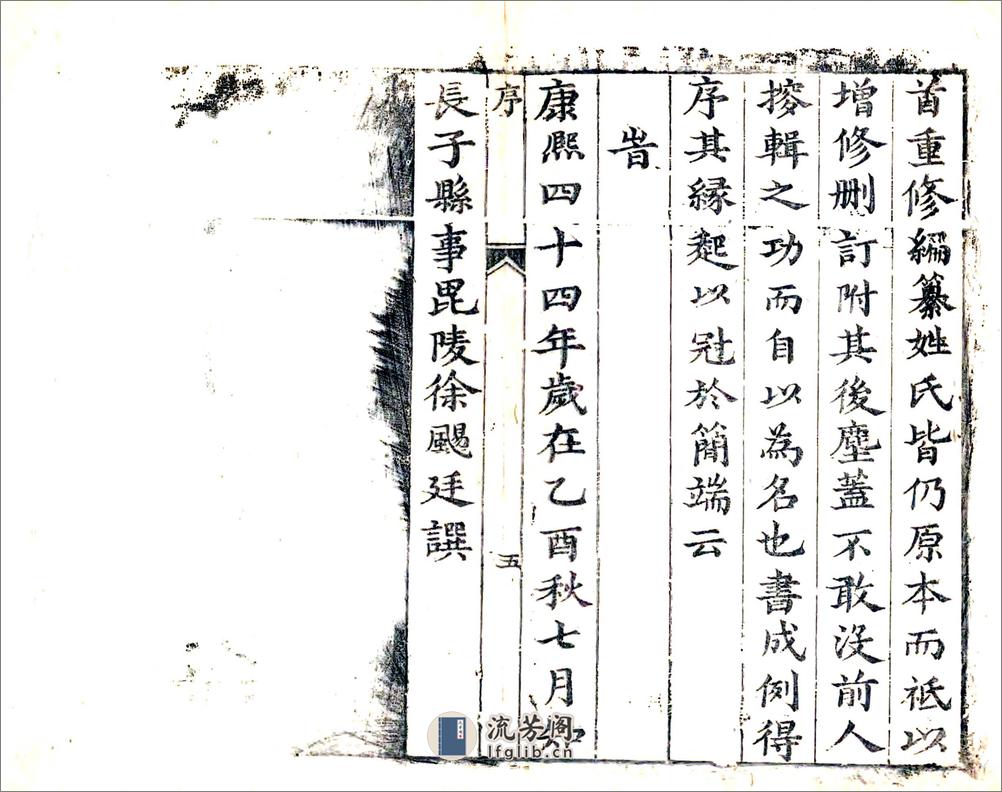 首重修編纂姓氏皆仍原本而祗以
增修刪訂附其後塵蓋不敢没前人
搜輯之功而自以為名也書成例得
序其緣起以冠於簡端云
旹
康熈四十四年歲在乙酉秋七月知
序
五
長子縣事毘陵徐颺廷譔
流芳阁
lfglib.cn